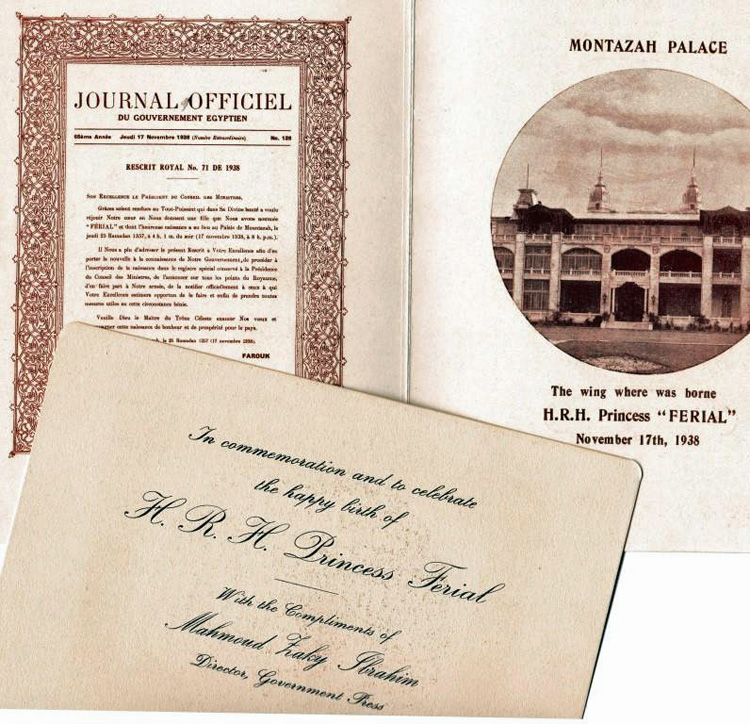 JOURNAL OFFICIEL
DU GOUVERNEMENT EGYPTIEN
65ème Année Jeudi 17 Novembre 1938 (Numéro Extraordinaire) No. 128
RESCRIT ROYAL No. 71 DE 1938
SON EXCELLENCE LE PRÉSIDENT DU CONSEIL DES MINISTRES,
Grâces soient rendues au Tout-Puissant qui dans Sa Divine bonté a voulu
réjouir Notre cœur en Nous donnant une fille que Nous avons nommée
"FÉRIAL" et dont l'heureuse naissance a eu lieu au Palais de Mountazah, le
jeudi 25 Ramadan 1357, à 4 h. 1 m. du soir (17 novembre 1938, à 8 h. p.m.).
Il Nous a plu d'adresser le présent Rescrit à Votre Excellence afin d'en
porter la nouvelle à la connaissance de Notre Gouvernement, de procéder à
l'inscription de la naissance dans le registre spécial conservé à la Présidence
du Conseil des Ministres, de l'annoncer sur tous les points du Royaume,
d'en faire part à Notre armée, de la notifier officiellement à ceux à qui
Votre Excellence estimera opportun de le faire et enfin de prendre toutes
mesures utiles en cette circonstance bénie.
Veuille Dieu le Maître du Trône Céleste exaucer Nos vœux et
cette naissance de bonheur et de prospérité pour le pays.
le 25 Ramadan 1357 (17 novembre 1938).
FAROUK
MONTAZAH PALACE
The wing where was borne
H.R.H. Princess "FERIAL"
November 17th, 1938
In commemoration and to celebrate
the happy birth of
H. R. H. Princess Ferial
With the Compliments of
Mahmoud Zaky Ibrahim
Director, Government Press